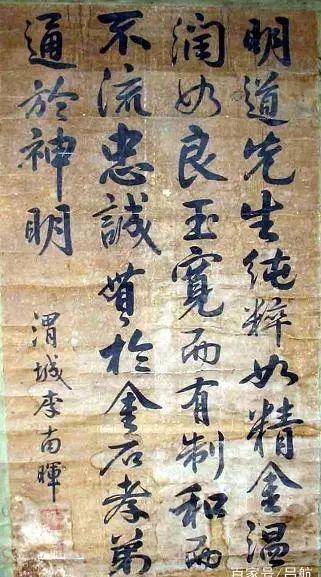 明道先生純粹如精金温
潤如良玉寬而有制和而
不流忠誠貫於金石孝弟
通於神明
渭城李南暉
百家号/吕航